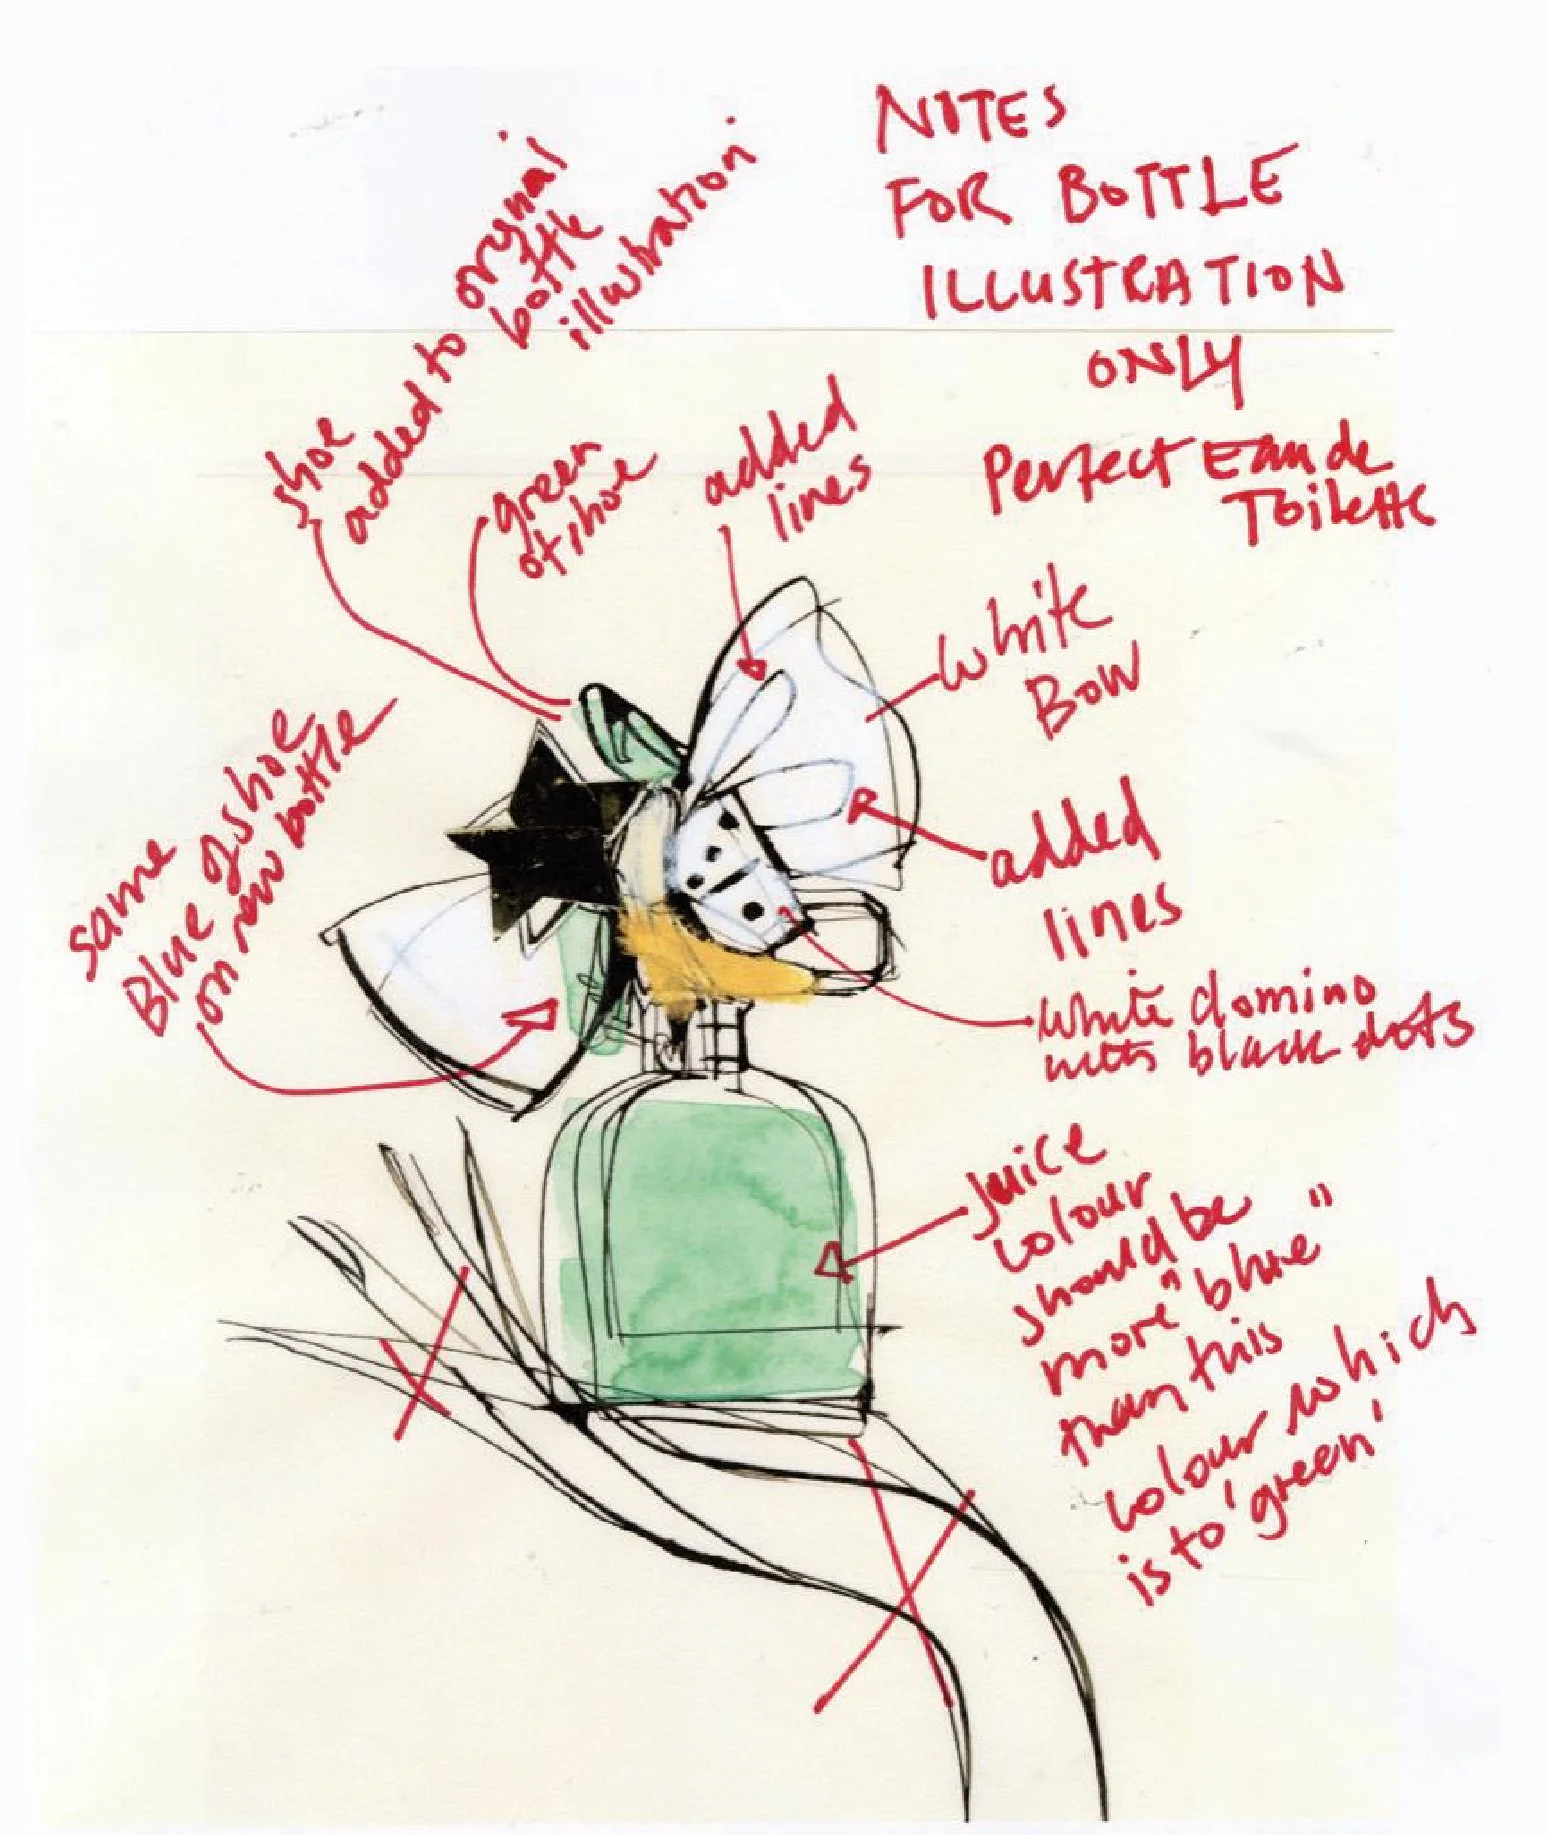 NOTES
FOR BOTTLE
ILLUSTRATION
ONLY
Perfect Eau de
Toilette
shoe
added to original
bottle
illustration
green
of shoe
added
lines
white
Bow
added
lines
same
Blue of shoe
on new bottle
white domino
with black dots
Juice
colour
should be
more "blue"
than this
colour which
is to 'green'